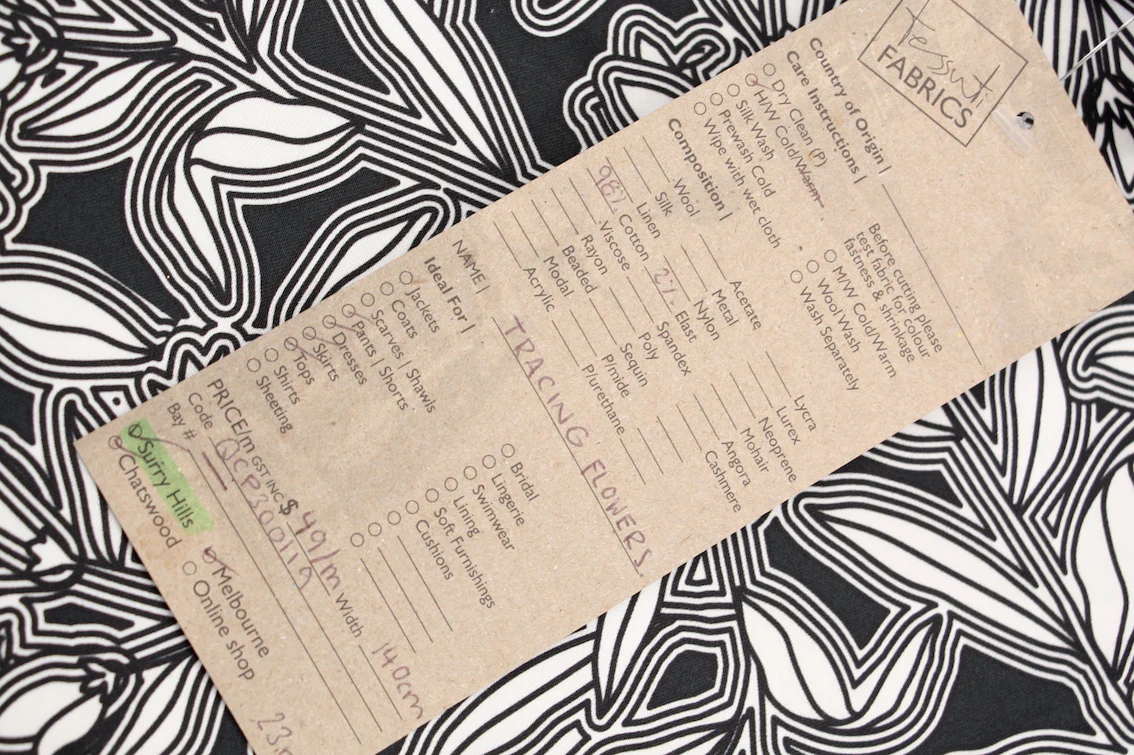 Tessuti
FABRICS
Country of Origin |
Care Instructions |
Dry Clean (P)
H/W Cold/Warm
Silk Wash
Prewash Cold
Wipe with wet cloth
Before cutting please
test fabric for colour
fastness & shrinkage
M/W Cold/Warm
Wool Wash
Wash Separately
Composition |
Wool
Silk
Linen
98% Cotton
Viscose
Rayon
Beaded
Modal
Acrylic
Acetate
Metal
Nylon
2% Elast
Spandex
Poly
Sequin
P/mide
P/urethane
Lycra
Lurex
Neoprene
Mohair
Angora
Cashmere
NAME | TRACING FLOWERS.
Ideal For |
Jackets
Coats
Scarves | Shawls
Pants | Shorts
Dresses
Skirts
Tops
Shirts
Sheeting
Bridal
Lingerie
Swimwear
Lining
Soft Furnishings
Cushions
PRICE/m GST INC $ 49/m Width 140cm
Code QCP300119
Bay #
Surry Hills
Chatswood
Melbourne
Online shop